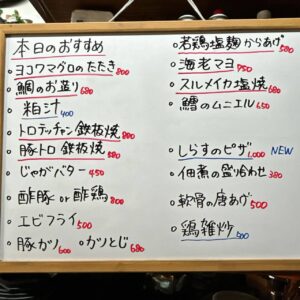 本日のおすすめ
・ヨコワマグロのたたき 800
・鯛のお造り 680
粕汁 400
・トロテッチャン鉄板焼 880
・豚トロ鉄板焼 580
・じゃがバター 450
・酢豚 or 酢鶏 800
・エビフライ 500
・豚ガツ 600 ・ガツとじ 680
・若鶏塩麹からあげ 580
・海老マヨ 750
・スルメイカ塩焼 680
・鱈のムニエル 650
・しらすのピザ 1,000 NEW
・佃煮の盛り合わせ 380
・軟骨の唐あげ 500
・鶏雑炒 500